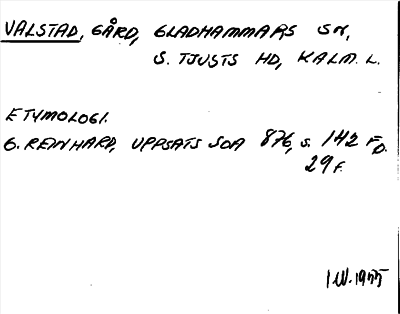 VALSTAD, GÅRD, GLADHAMMARS SN,
S. TJUSTS HD, KALM. L.
ETYMOLOGI.
G. REINHARD, UPPSATS SOA 876, S. 142 F.
29 F.
1955